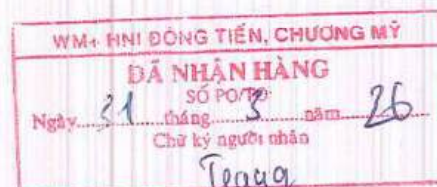 WM+ HNI ĐÔNG TIẾN, CHƯƠNG MỸ
ĐÃ NHẬN HÀNG
SỐ PO/TO:
Ngày 31 tháng 3 năm 26
Chữ ký người nhận
Trang